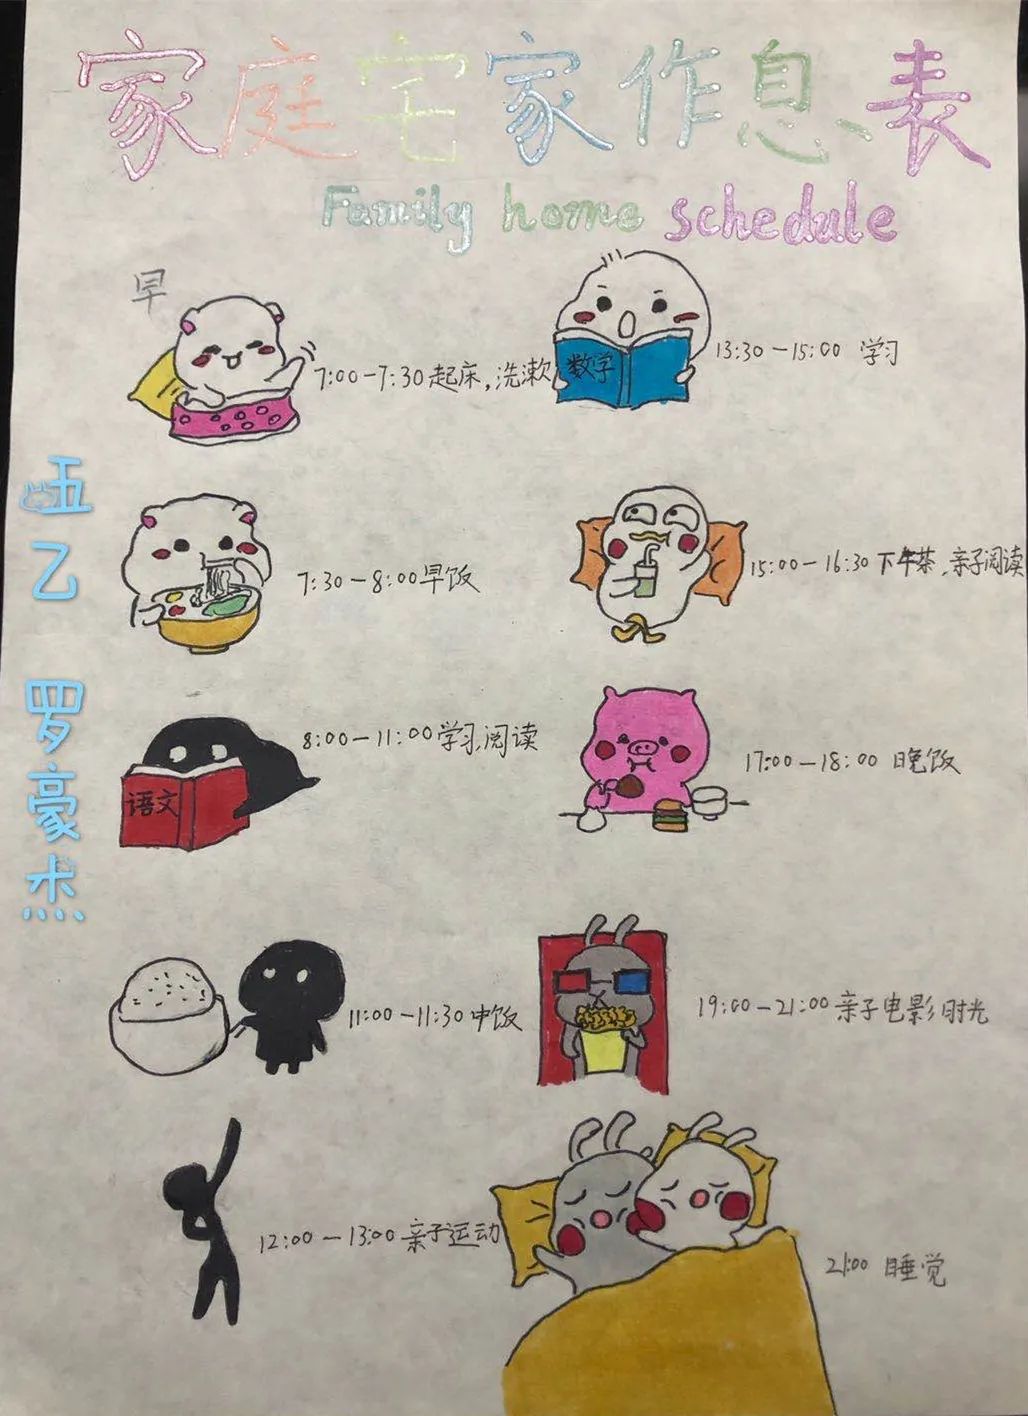 家庭宅家作息表
Family home schedule
早
7:00-7:30起床,洗漱
7:30-8:00早饭
8:00-11:00学习,阅读
语文
11:00-11:30中饭
12:00-13:00亲子运动
数学
13:30-15:00 学习
15:00-16:30下午茶,亲子阅读
17:00-18:00 晚饭
19:00-21:00亲子电影时光
21:00 睡觉
五乙 罗豪杰